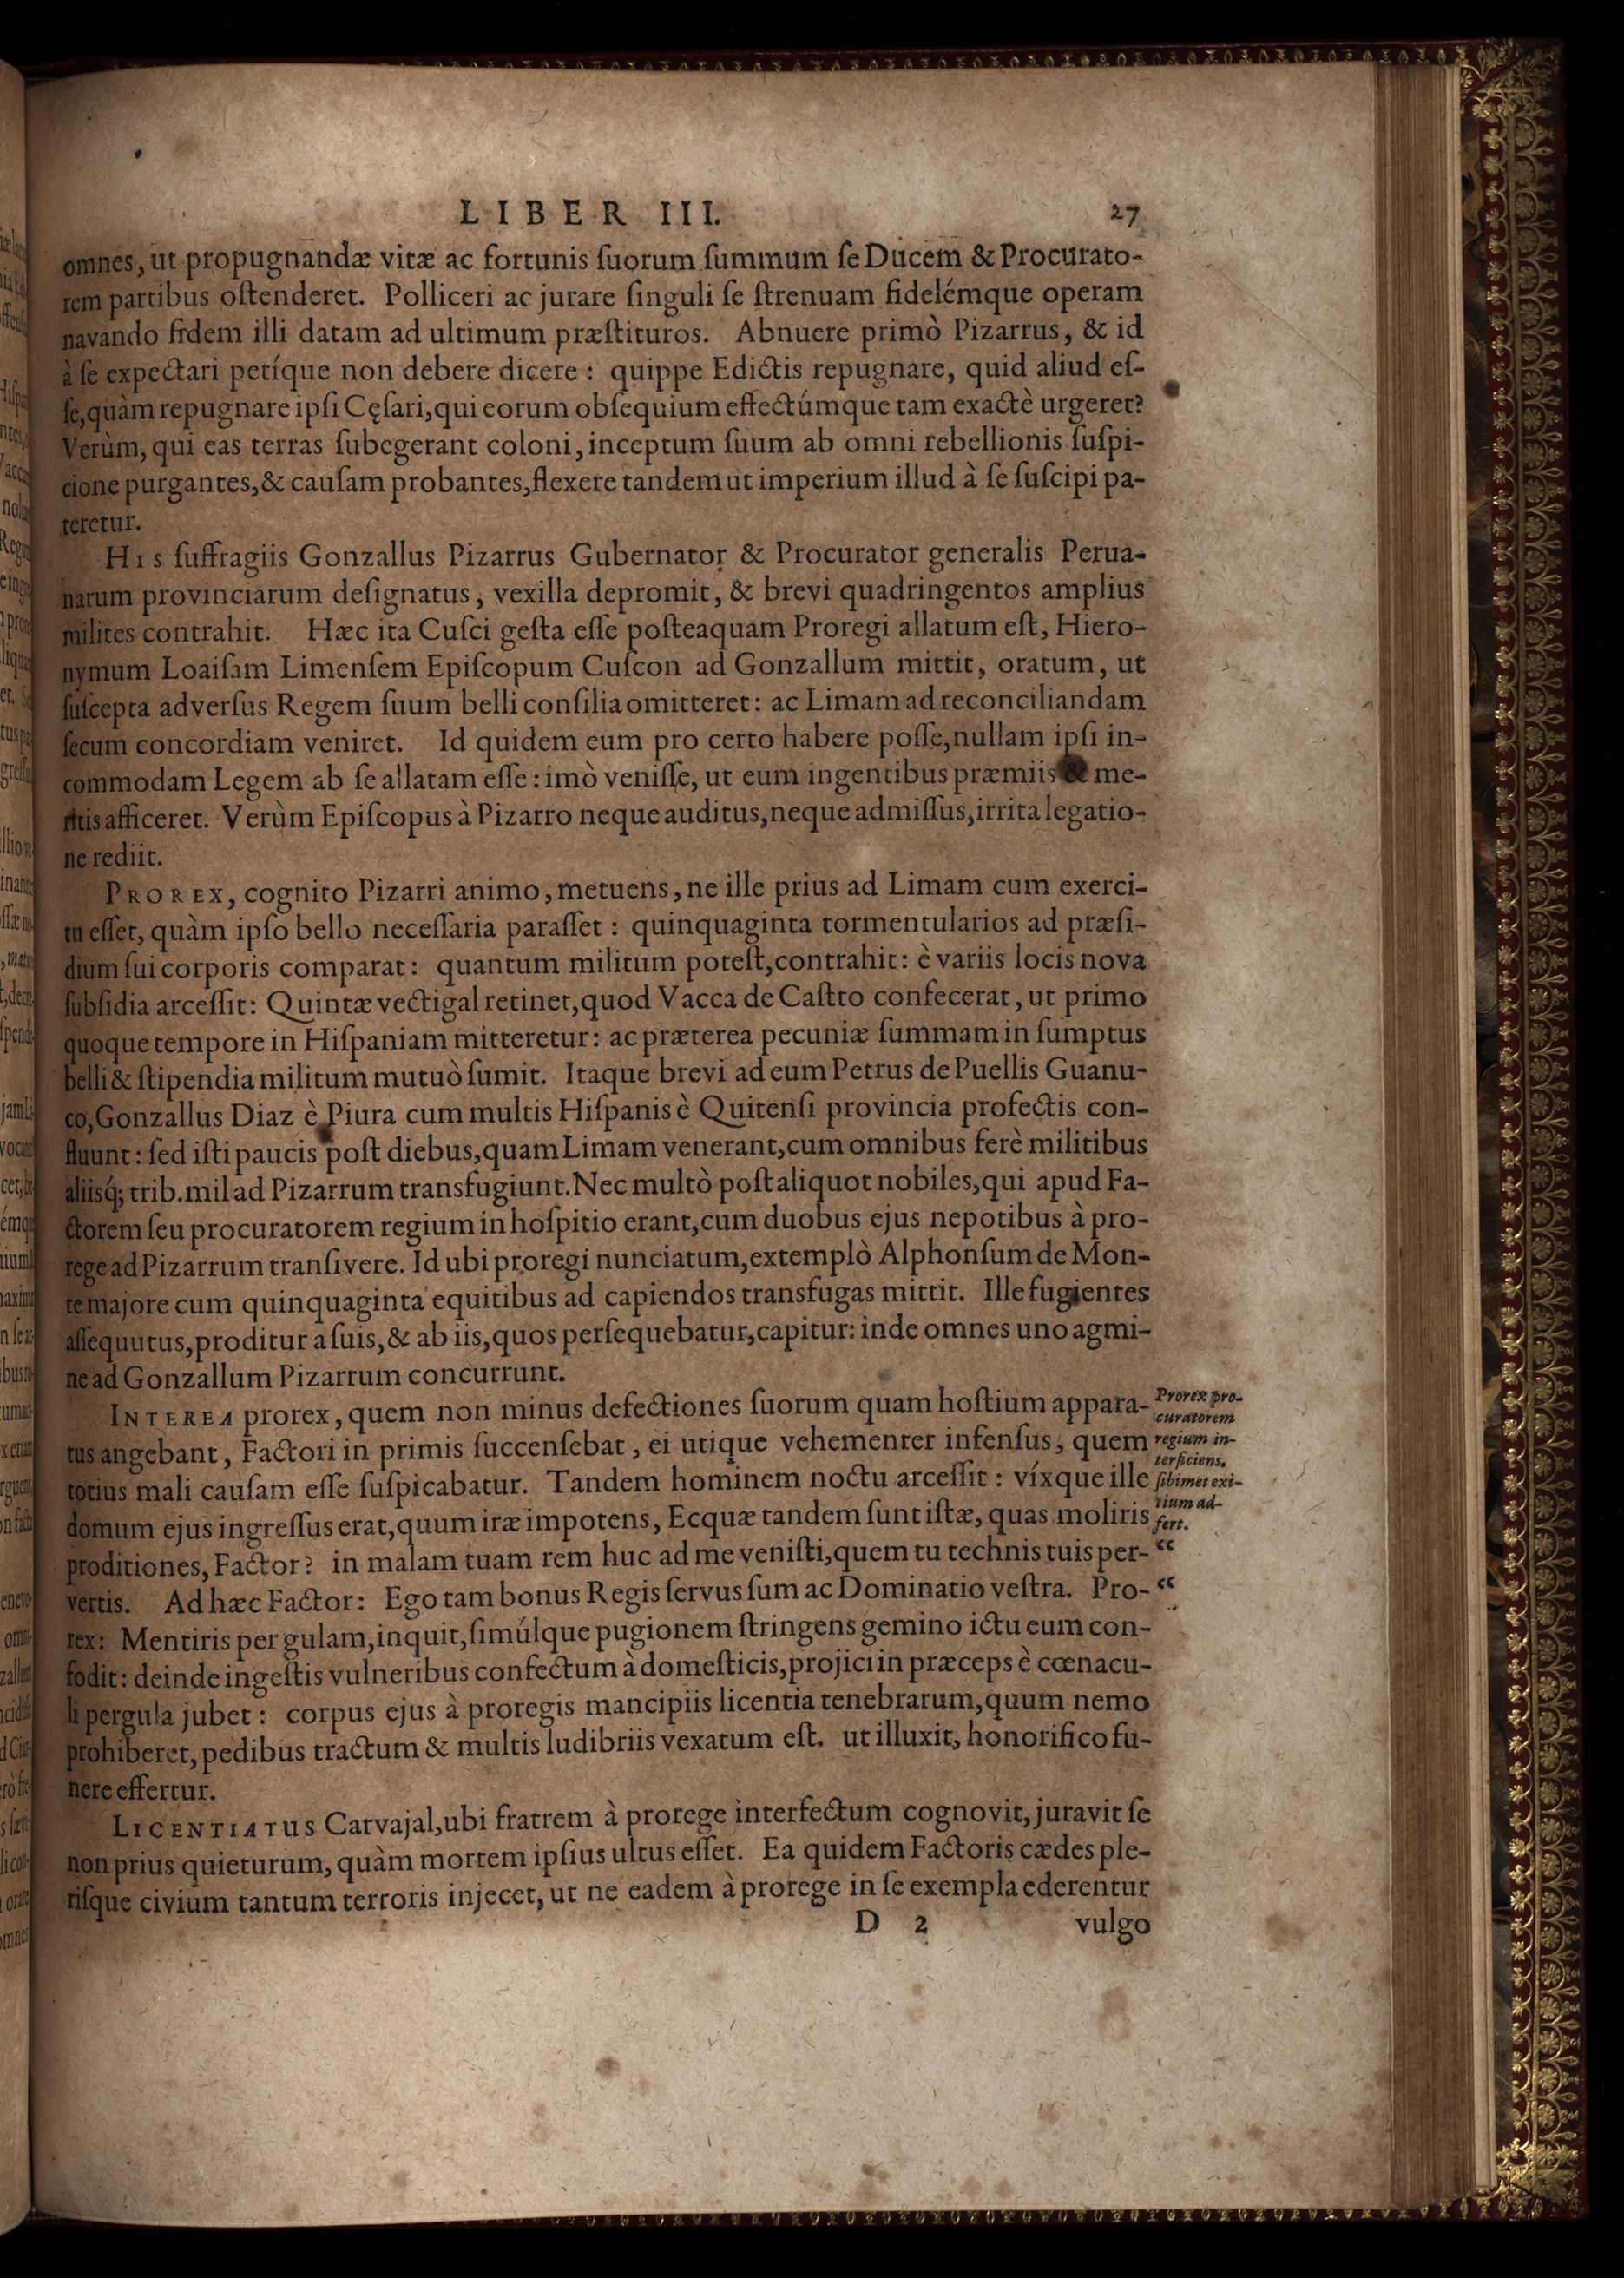 LIBER III. 27
omnes, ut propugnandæ vitæ ac fortunis ſuorum ſummum ſe Ducem & Procurato-
rem partibus oſtenderet. Polliceri ac jurare ſinguli ſe ſtrenuam fidelémque operam
navando fidem illi datam ad ultimum præſtituros. Abnuere primò Pizarrus, & id
à ſe expectari petíque non debere dicere : quippe Edictis repugnare, quid aliud eſ-
ſe, quàm repugnare ipſi Cęſari, qui eorum obſequium effectúmque tam exactè urgeret?
Verùm, qui eas terras ſubegerant coloni, inceptum ſuum ab omni rebellionis ſuſpi-
cione purgantes, & cauſam probantes, flexere tandem ut imperium illud à ſe ſuſcipi pa-
teretur.
HIS ſuffragiis Gonzallus Pizarrus Gubernator & Procurator generalis Perua-
narum provinciarum deſignatus, vexilla depromit, & brevi quadringentos amplius
milites contrahit. Hæc ita Cuſci geſta eſſe poſteaquam Proregi allatum eſt, Hiero-
nymum Loaiſam Limenſem Epiſcopum Cuſcon ad Gonzallum mittit, oratum, ut
ſuſcepta adverſus Regem ſuum belli conſilia omitteret : ac Limam ad reconciliandam
ſecum concordiam veniret. Id quidem eum pro certo habere poſſe, nullam ipſi in-
commodam Legem ab ſe allatam eſſe : imò veniſſe, ut eum ingentibus præmiis & me-
ritis afficeret. Verùm Epiſcopus à Pizarro neque auditus, neque admiſſus, irrita legatio-
ne rediit.
PROREX, cognito Pizarri animo, metuens, ne ille prius ad Limam cum exerci-
tu eſſet, quàm ipſo bello neceſſaria paraſſet : quinquaginta tormentularios ad præſi-
dium ſui corporis comparat : quantum militum poteſt, contrahit : è variis locis nova
ſubſidia arceſſit : Quintæ vectigal retinet, quod Vacca de Caſtro confecerat, ut primo
quoque tempore in Hiſpaniam mitteretur : ac præterea pecuniæ ſummam in ſumptus
belli & ſtipendia militum mutuò ſumit. Itaque brevi ad eum Petrus de Puellis Guanu-
co, Gonzallus Diaz è Piura cum multis Hiſpanis è Quitenſi provincia profectis con-
fluunt : ſed iſti paucis poſt diebus, quam Limam venerant, cum omnibus ferè militibus
aliisq́; trib. mil ad Pizarrum transfugiunt. Nec multò poſt aliquot nobiles, qui apud Fa-
ctorem ſeu procuratorem regium in hoſpitio erant, cum duobus ejus nepotibus à pro-
rege ad Pizarrum tranſivere. Id ubi proregi nunciatum, extemplò Alphonſum de Mon-
te majore cum quinquaginta equitibus ad capiendos transfugas mittit. Ille fugientes
aſſequutus, proditur a ſuis, & ab iis, quos perſequebatur, capitur : inde omnes uno agmi-
ne ad Gonzallum Pizarrum concurrunt.
INTEREA prorex, quem non minus defectiones ſuorum quam hoſtium appara-
tus angebant, Factori in primis ſuccenſebat, ei utique vehementer infenſus, quem
totius mali cauſam eſſe ſuſpicabatur. Tandem hominem noctu arceſſit : víxque ille
domum ejus ingreſſus erat, quum iræ impotens, Ecquæ tandem ſunt iſtæ, quas moliris
proditiones, Factor? in malam tuam rem huc ad me veniſti, quem tu technis tuis per- “
vertis. Ad hæc Factor : Ego tam bonus Regis ſervus ſum ac Dominatio veſtra. Pro- “
rex : Mentiris per gulam, inquit, ſimúlque pugionem ſtringens gemino ictu eum con-
fodit : deinde ingeſtis vulneribus confectum à domeſticis, projici in præceps è cœnacu-
li pergula jubet : corpus ejus à proregis mancipiis licentia tenebrarum, quum nemo
prohiberet, pedibus tractum & multis ludibriis vexatum eſt. ut illuxit, honorifico fu-
nere effertur.
LICENTIATUS Carvajal, ubi fratrem à prorege interfectum cognovit, juravit ſe
non prius quieturum, quàm mortem ipſius ultus eſſet. Ea quidem Factoris cædes ple-
riſque civium tantum terroris injecet, ut ne eadem à prorege in ſe exempla ederentur
D 2 vulgo
Prorex pro-
curatorem
regium in-
terficiens,
ſibimet exi-
tium ad-
fert.